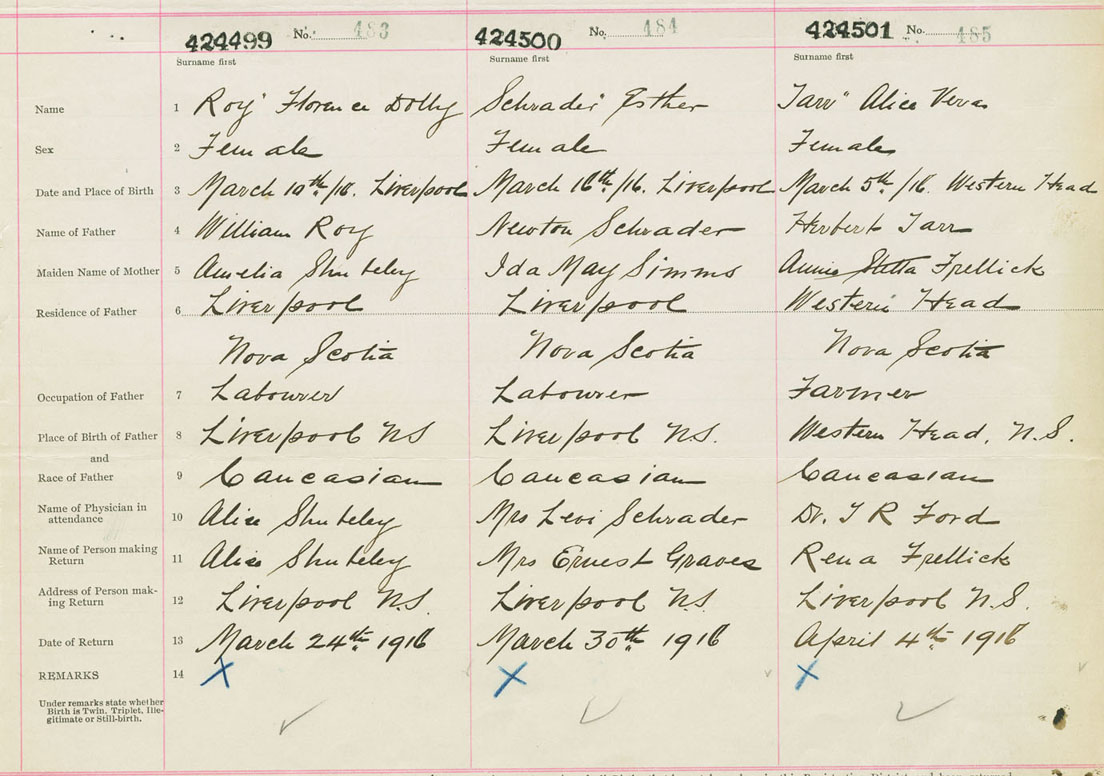 424499 No. 483 424500 No. 484 424501 No. 485
Surname first Surname first Surname first
Name 1 Roy" Florence Dolly Schrader" Esther Tarr" Alice Vera
Sex 2 Female Female Female
Date and Place of Birth 3 March 10th/16. Liverpool March 16th/16. Liverpool March 5th/16. Western Head
Name of Father 4 William Roy Newton Schrader Herbert Tarr
Maiden Name of Mother 5 Amelia Shuteley Ida May Simms Annie Stella Frellick
Residence of Father 6 Liverpool Liverpool Western Head
Nova Scotia Nova Scotia Nova Scotia
Occupation of Father 7 Labourer Labourer Farmer
Place of Birth of Father 8 Liverpool N.S Liverpool N.S. Western Head, N.S.
and
Race of Father 9 Caucasian Caucasian Caucasian
Name of Physician in
attendance 10 Alice Shuteley Mrs Levi Schrader Dr. T R Ford
Name of Person making
Return 11 Alice Shuteley Mrs Ernest Graves Rena Frellick
Address of Person mak-
ing Return 12 Liverpool N.S. Liverpool N.S. Liverpool N.S.
Date of Return 13 March 24th 1916 March 30th 1916 April 4th 1916
REMARKS 14 X X X
Under remarks state whether
Birth is Twin, Triplet, Ille-
gitimate or Still-birth.